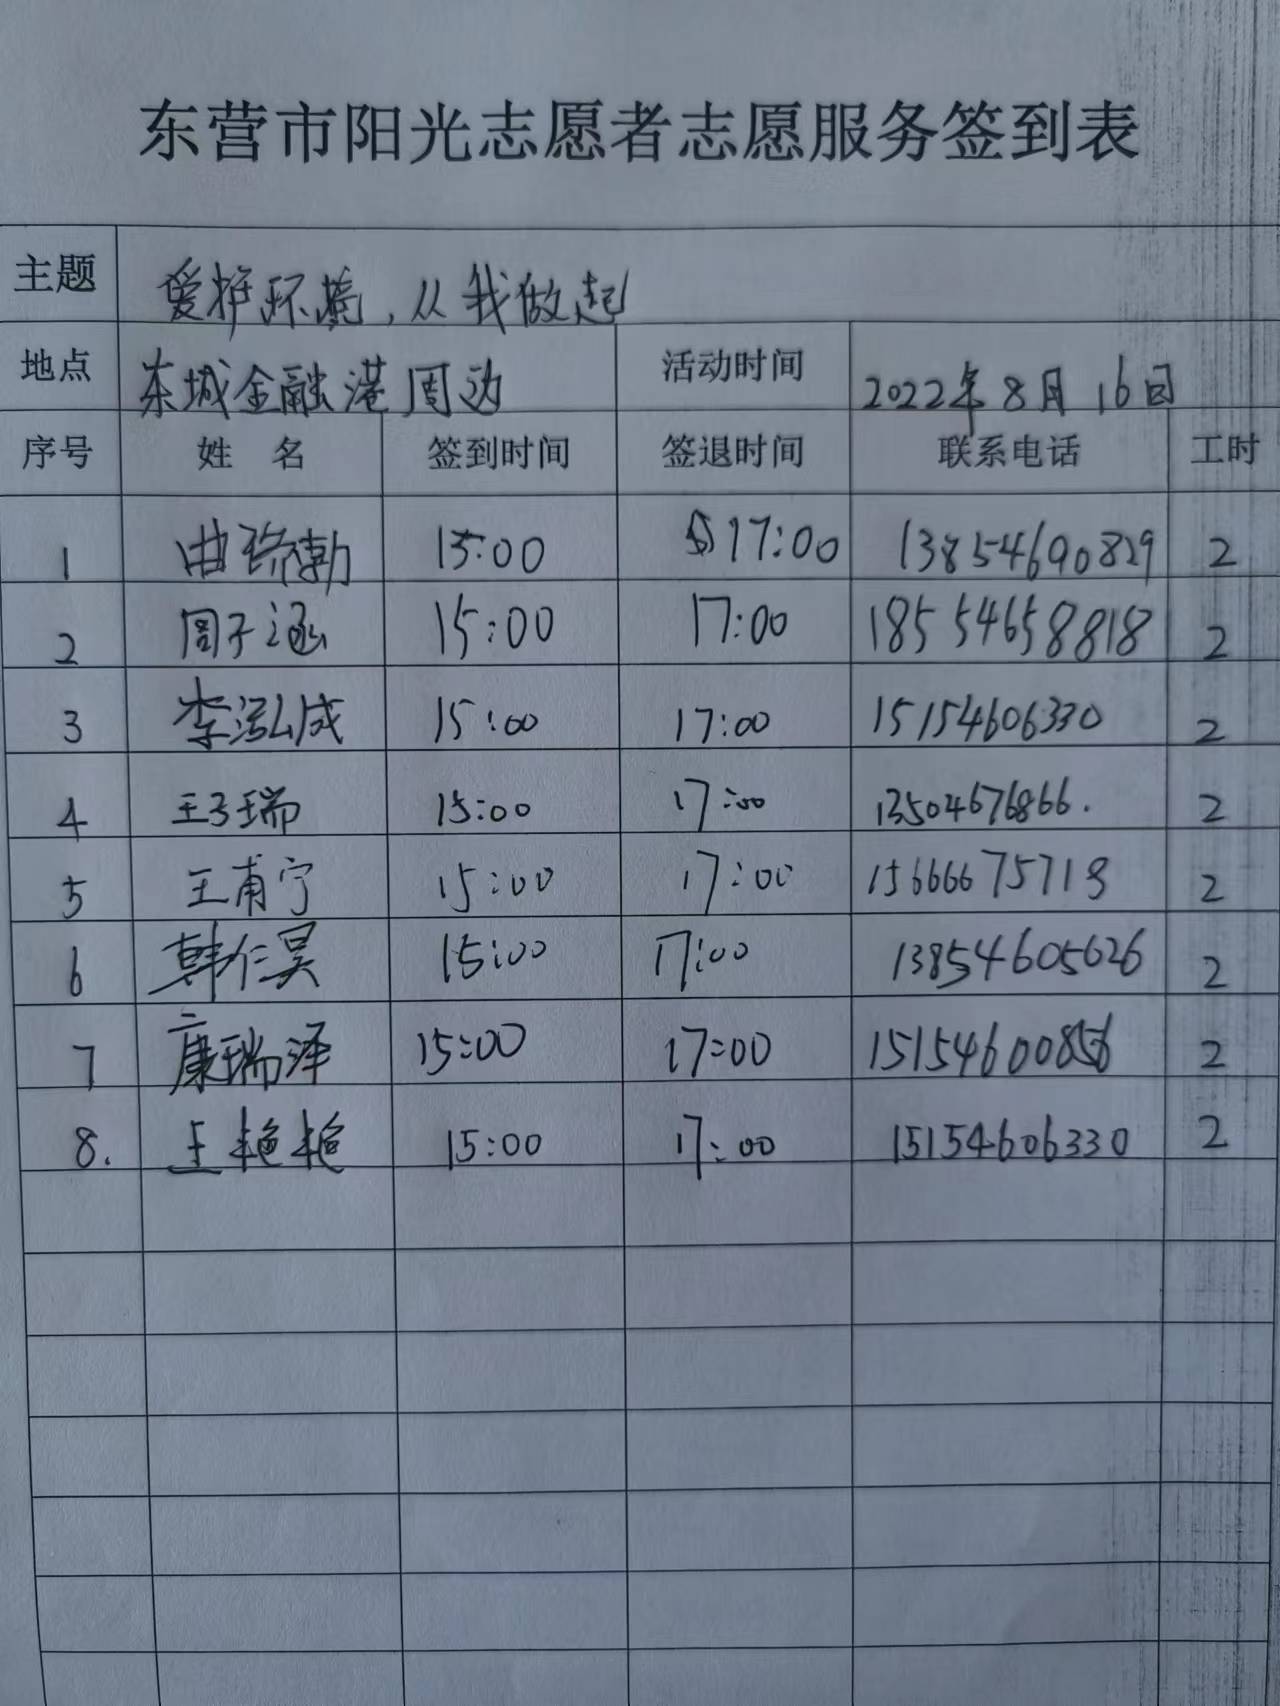 东营市阳光志愿者志愿服务签到表
主题 爱护环境，从我做起
地点 东城金融港周边 活动时间 2022年8月16日
序号 姓 名 签到时间 签退时间 联系电话 工时
1 曲 勃 15:00 17:00 13854690829 2
2 周子涵 15:00 17:00 18554658818 2
3 李泓成 15:00 17:00 15154606330 2
4 王子瑞 15:00 17:00 13504676866. 2
5 王甫宁 15:00 17:00 15666675718 2
6 韩仁昊 15:00 17:00 13854605626 2
7 康瑞泽 15:00 17:00 15154600856 2
8. 王艳艳 15:00 17:00 15154606330 2